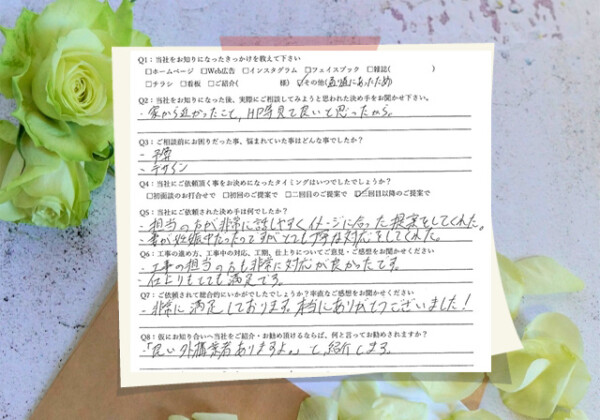 Q1：当社をお知りになったきっかけを教えて下さい
□ホームページ □Web広告 □インスタグラム □フェイスブック □雑誌( )
□チラシ □看板 □ご紹介( 様) ☑その他(近場にあったため)
Q2：当社をお知りになった後、実際にご相談してみようと思われた決め手をお聞かせ下さい。
・家から近かったこと、HP等見て良いと思ったから。
Q3：ご相談前にお困りだった事、悩まれていた事はどんな事でしたか？
・予算
・デザイン
Q4：当社にご依頼頂く事をお決めになったタイミングはいつでしたでしょうか？
□初面談のお打合せで □初回のご提案で □二回目のご提案で ☑三回目以降のご提案で
Q5：当社にご依頼された決め手は何でしたか？
・担当の方が非常に話しやすくイメージに合った提案をしてくれた。
妻が妊娠中だったのですがとても丁寧な対応をしてくれた。
Q6：工事の進め方、工事中の対応、工期、仕上りについてご意見・ご感想をお聞かせください
・工事の担当の方も非常に対応が良かったです。
仕上りもとても満足です。
Q7：ご依頼されて総合的にいかがでしたでしょうか？率直なご感想をお聞かせください
・非常に満足しております。本当にありがとうございました！
Q8：仮にお知り合いへ当社をご紹介・お勧め頂けるならば、何と言ってお勧めされますか？
・「良い外構業者ありますよ。」と紹介します。